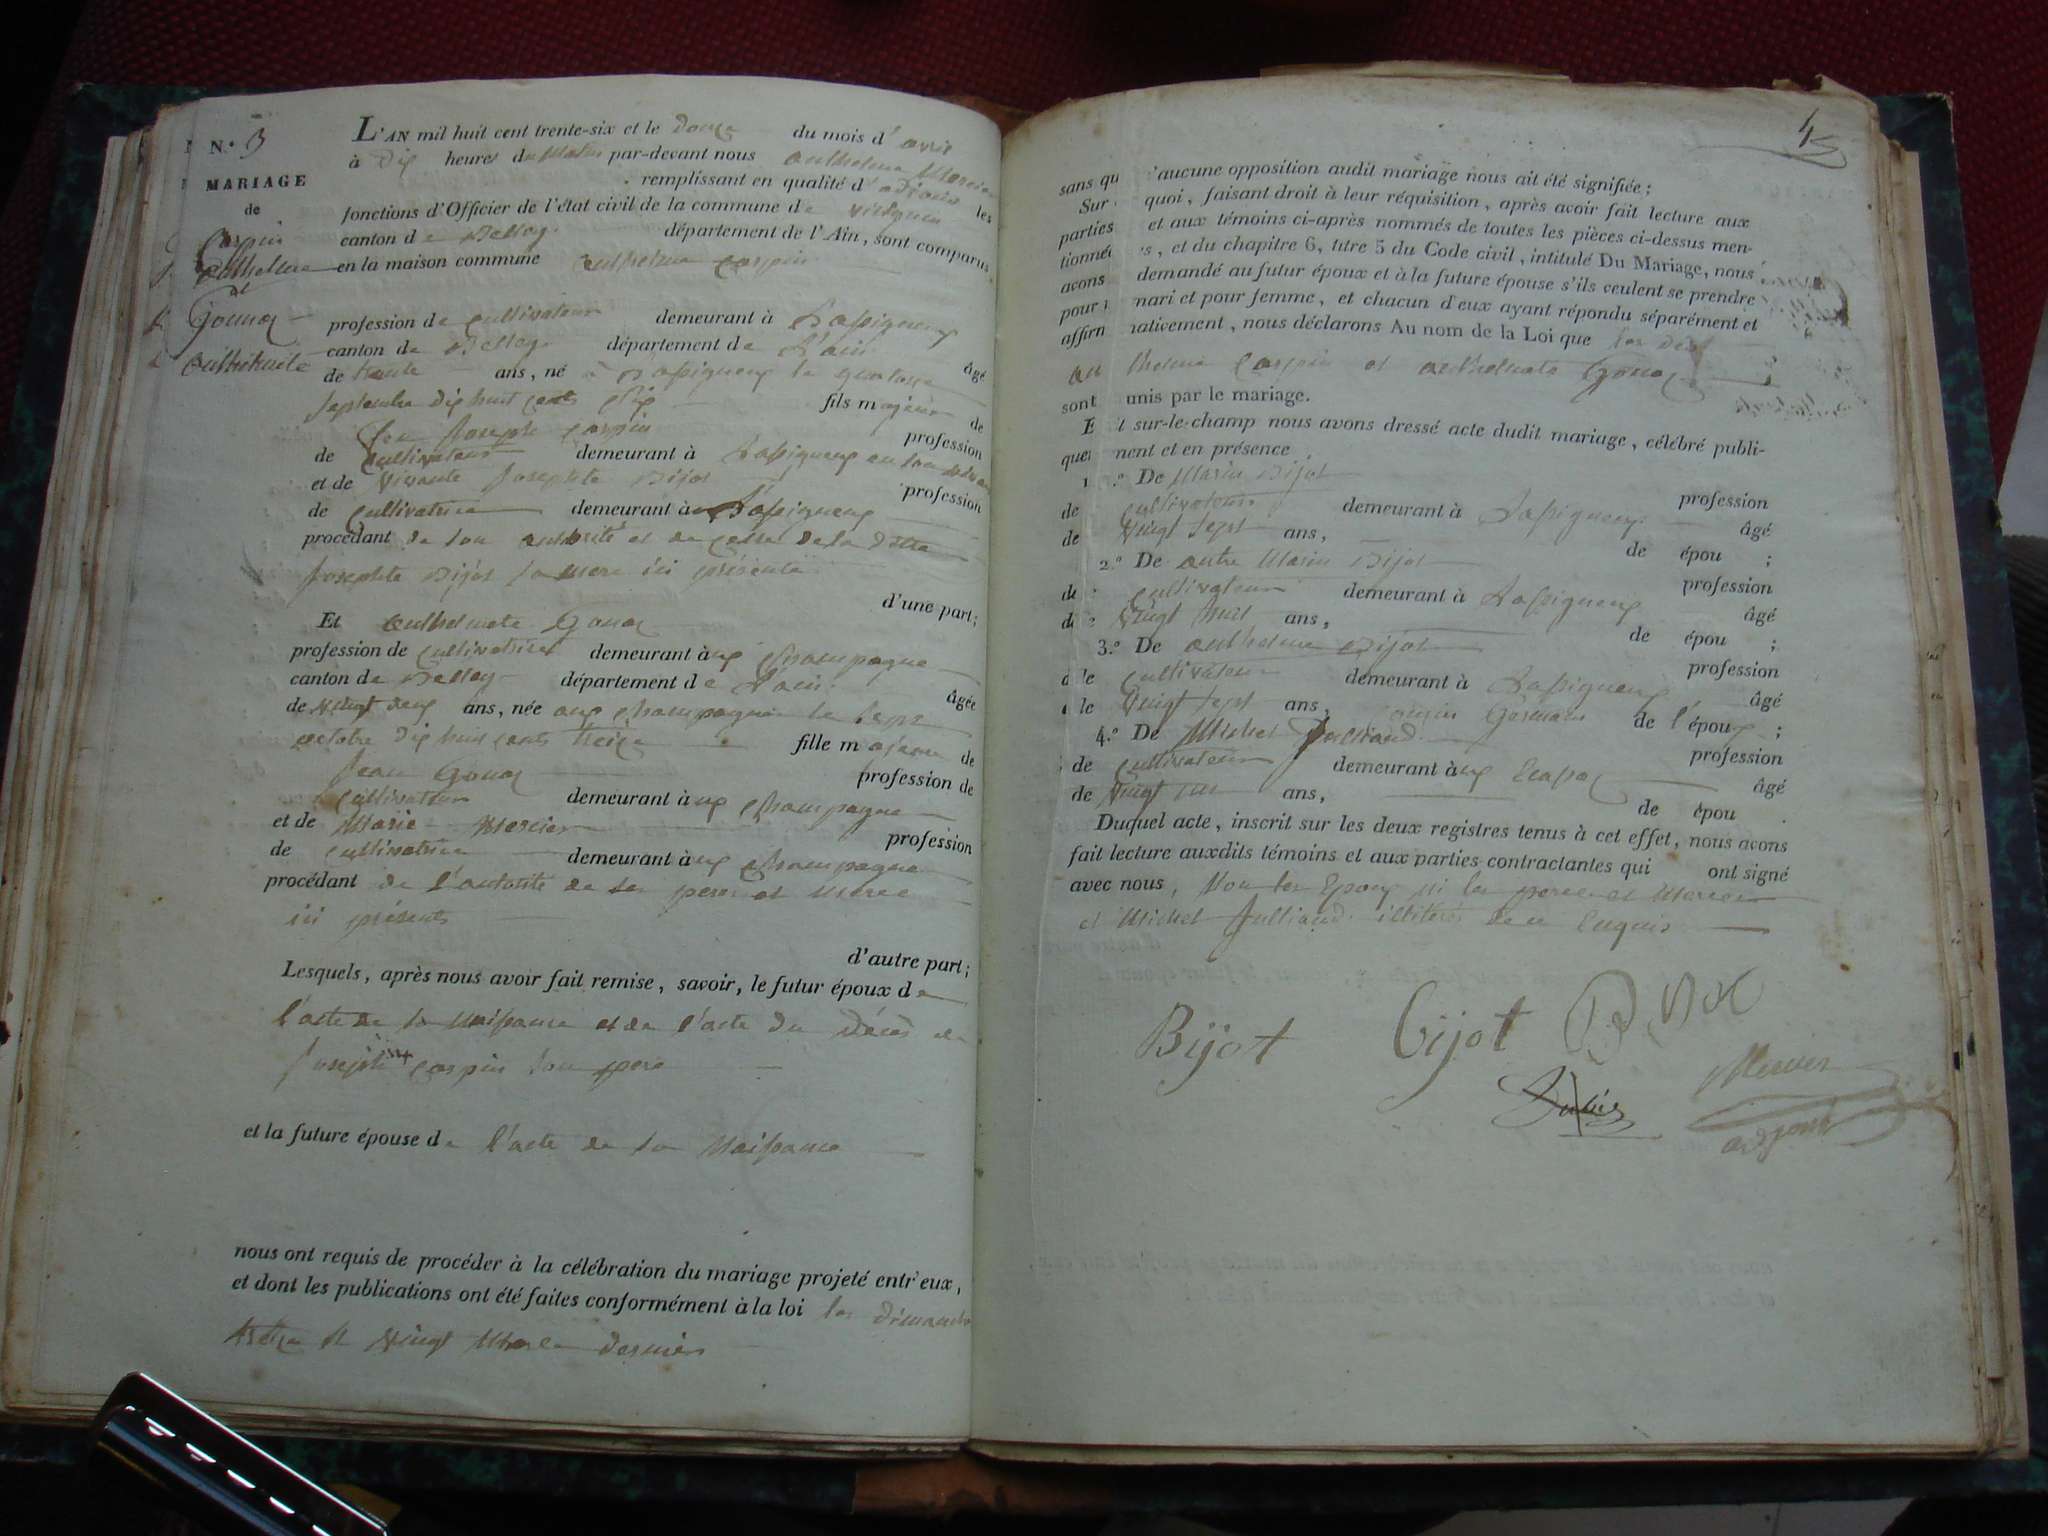 N.º 3
MARIAGE
de
Carpin
Anthelme
et
Gonnaz
Anthelmete
L'AN mil huit cent trente-six et le douze du mois d'avril
à dix heures du Matin par-devant nous anthelme Mercier
remplissant en qualité d'adjoint les
fonctions d'Officier de l'état civil de la commune de
canton de Belley département de l'Ain, sont comparus
en la maison commune anthelme Carpin
profession de cultivateur demeurant à
canton de Belley département de L'ain âgé
de trente ans, né à le quatorze
septembre dix huit cents fils majeur de
feu Joseph Carpin profession
de cultivateur demeurant à en son vivant
et de vivante Josephte Bijot profession
de cultivatrice demeurant à
procédant de son autorité et de celle de la ditte
Josephte Bijot sa mere ici présente
d'une part;
Et anthelmete Gonaz
profession de cultivatrice demeurant aux Champagne
canton de Belley département de L'ain âgée
de vingt deux ans, née aux Champagne le sept
octobre dix huit cents treize fille majeure de
Jean Gonaz profession de
cultivateur demeurant aux Champagne
et de Marie Mercier profession
de cultivatrice demeurant aux Champagne
procédant de l'autorité de ses pere et mere
ici présents
d'autre part;
Lesquels, après nous avoir fait remise, savoir, le futur époux de
l'acte de sa Naissance et de l'acte du Décès de
Joseph Carpin son pere
et la future épouse de l'acte de sa Naissance
nous ont requis de procéder à la célébration du mariage projeté entr'eux,
et dont les publications ont été faites conformément à la loi les dimanches
treize et vingt Mars dernier
45
sans qu'aucune opposition audit mariage nous ait été signifiée;
Sur quoi, faisant droit à leur réquisition, après avoir fait lecture aux
parties et aux témoins ci-après nommés de toutes les pièces ci-dessus men-
tionnées, et du chapitre 6, titre 5 du Code civil, intitulé Du Mariage, nous
avons demandé au futur époux et à la future épouse s'ils veulent se prendre
pour mari et pour femme, et chacun d'eux ayant répondu séparément et
affirmativement, nous déclarons Au nom de la Loi que les dits
anthelme Carpin et anthelmete Gonaz
sont unis par le mariage.
Et sur-le-champ nous avons dressé acte dudit mariage, célébré publi-
quement et en présence
1.º De Marin Bijot profession
de cultivateur demeurant à âgé
de vingt sept ans, de épou ;
2.º De autre Marin Bijot profession
de cultivateur demeurant à âgé
de vingt huit ans, de épou ;
3.º De anthelme Bijot profession
de cultivateur demeurant à âgé
de vingt sept ans, cousin Germain de l'époux ;
4.º De Michel Julliand profession
de cultivateur demeurant aux âgé
de vingt ans, de épou .
Duquel acte, inscrit sur les deux registres tenus à cet effet, nous avons
fait lecture auxdits témoins et aux parties contractantes qui ont signé
avec nous, Non les Epoux ni les peres et Meres
et Michel Julliand illiterés de ce Enquis
Bijot Bijot
Mercier
adjoint